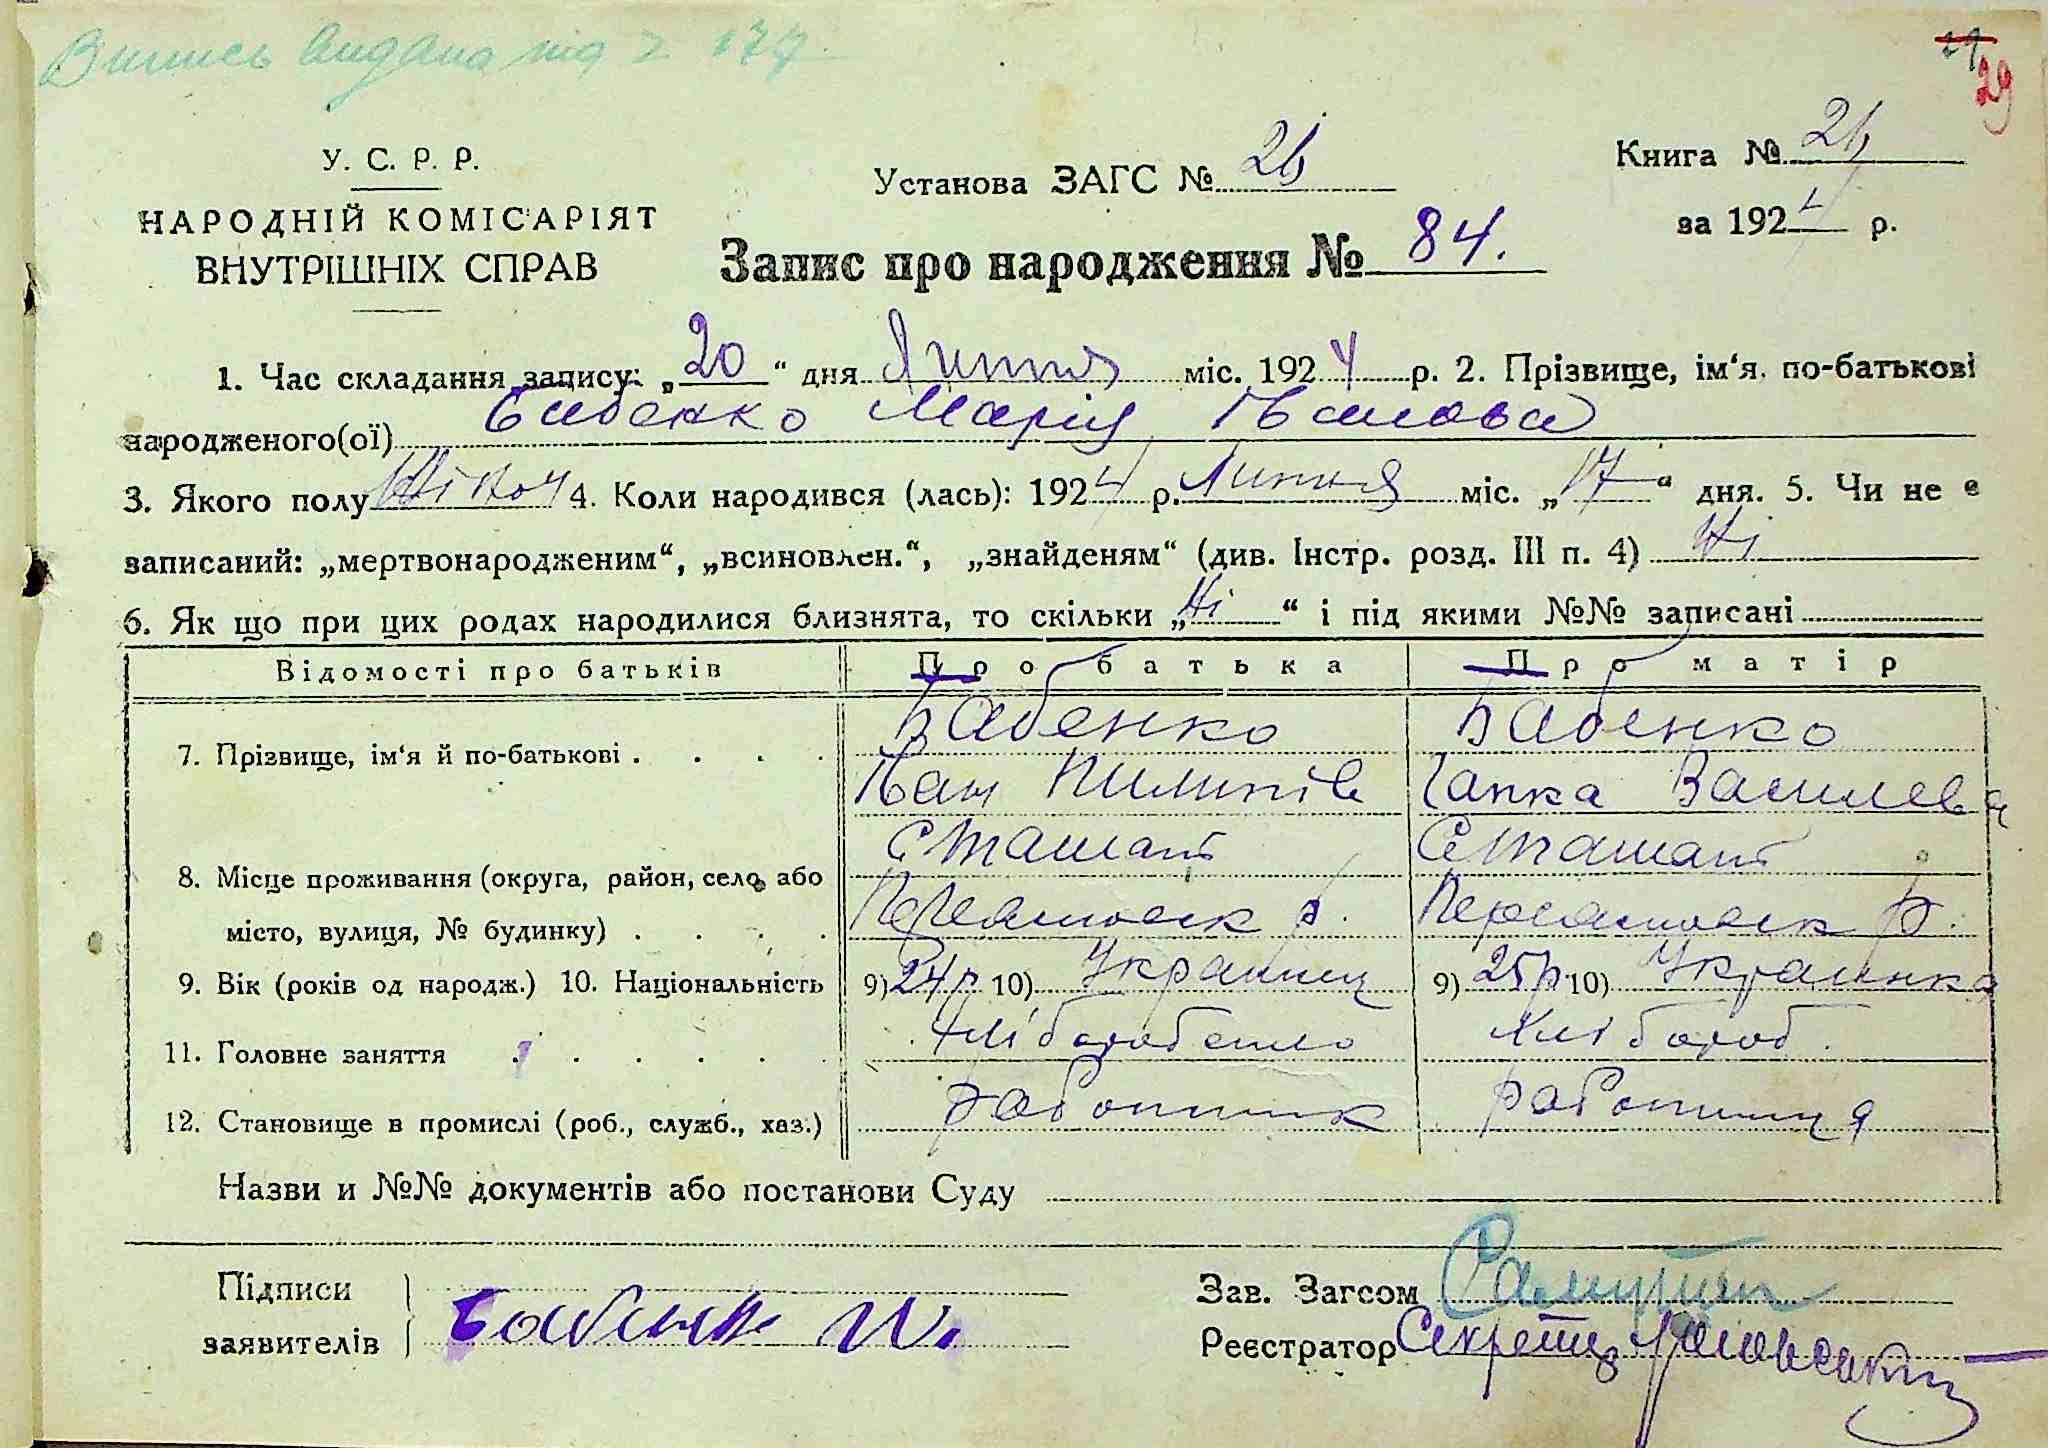 Випись видана під № 177.
29
29
У. С. Р. Р.
НАРОДНІЙ КОМІСАРІЯТ
ВНУТРІШНІХ СПРАВ
Установа ЗАГС № 26
Книга № 26
за 1924 р.
Запис про народження № 84.
1. Час складання запису: „20“ дня Липня міс. 1924 р. 2. Прізвище, ім‘я, по-батькові
народженого(ої) Бабенко Марія Іванова
3. Якого полу Жіноч 4. Коли народився (лась): 1924 р. Липня міс. „17“ дня. 5. Чи не є
записаний: „мертвонародженим“, „всиновлен.“, „знайденям“ (див. Інстр. розд. III п. 4) Ні
6. Як що при цих родах народилися близнята, то скільки „Ні“ і під якими №№ записані
Відомості про батьків Про батька Про матір
7. Прізвище, ім‘я й по-батькові . . . . Бабенко Бабенко
Іван Пилипів Гапка Василева
8. Місце проживання (округа, район, село, або
місто, вулиця, № будинку) . . . . р. р.
9. Вік (років од народж.) 10. Національність 9) 24 р 10) Українець 9) 25 р 10) Українка
11. Головне заняття . . . . . . Хліборобство Хлібороб.
12. Становище в промислі (роб., служб., хаз.) работник работниця
Назви и №№ документів або постанови Суду
Підписи
заявителів Бабенко
Зав. Загсом
Реєстратор Секретар